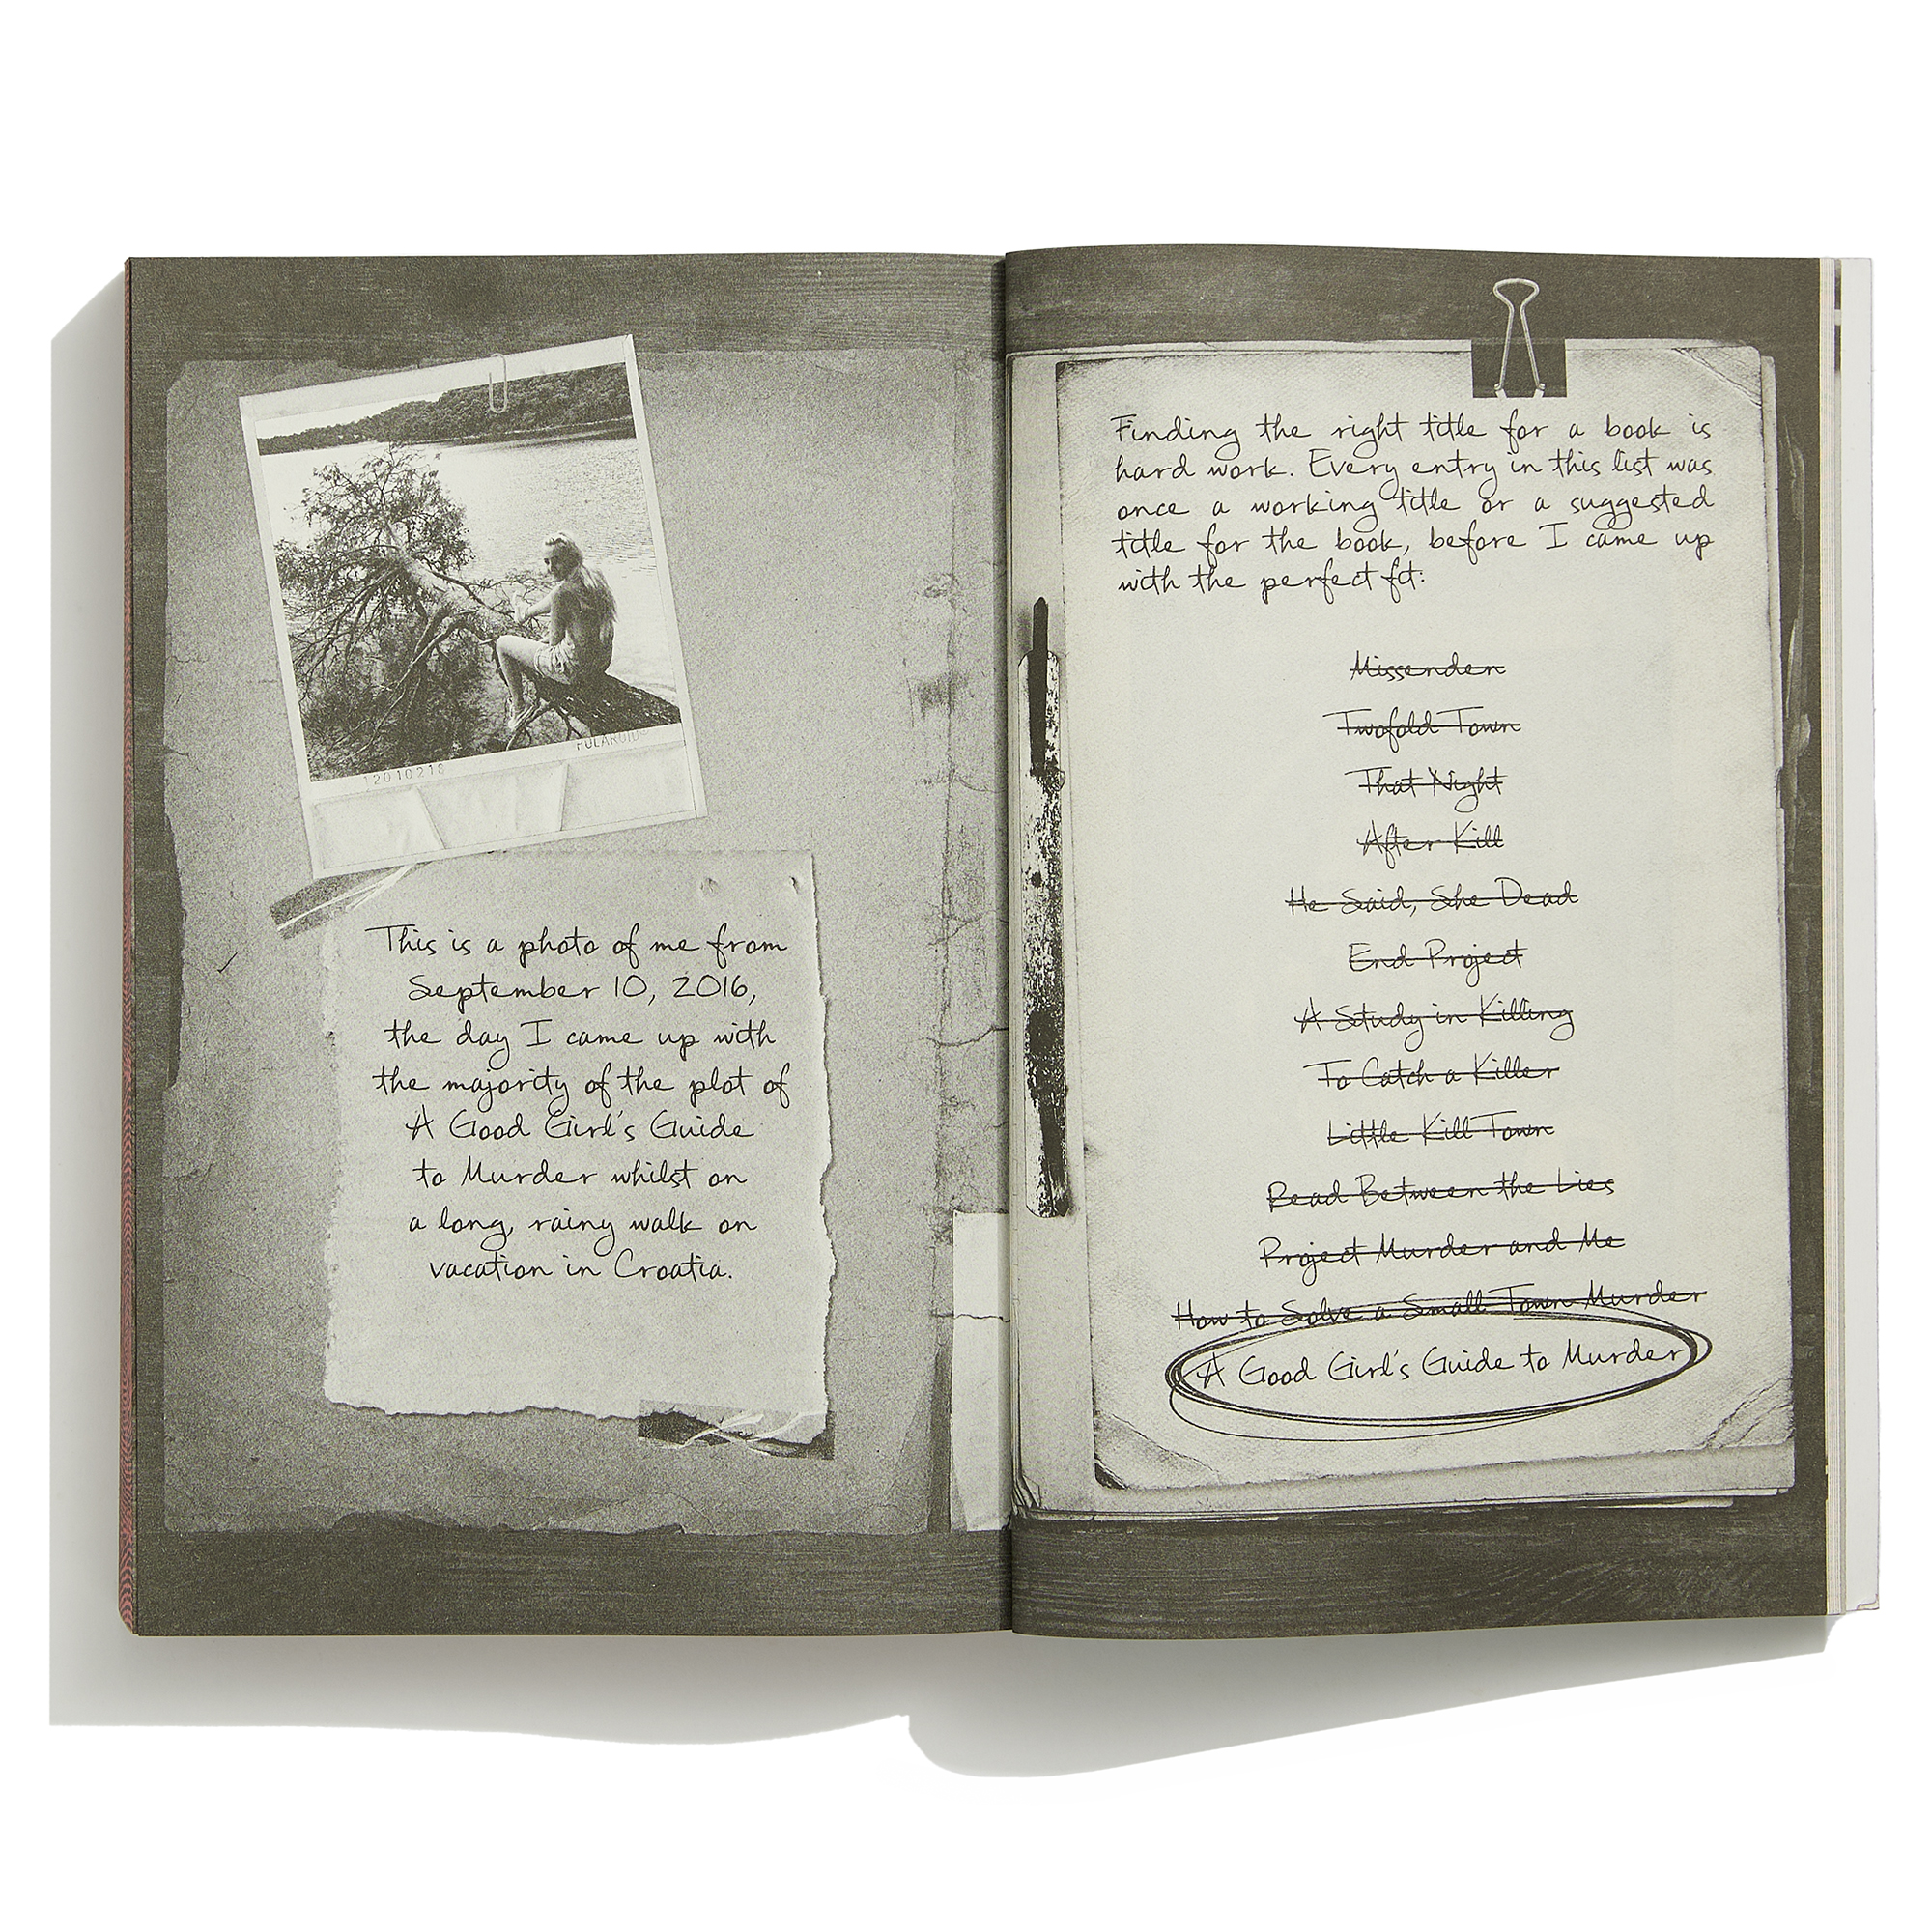 POLAROID
12010216
This is a photo of me from
September 10, 2016,
the day I came up with
the majority of the plot of
A Good Girl's Guide
to Murder whilst on
a long, rainy walk on
vacation in Croatia.
Finding the right title for a book is
hard work. Every entry in this list was
once a working title or a suggested
title for the book, before I came up
with the perfect fit:
Missenden
Twofold Town
That Night
After Kill
He Said, She Dead
End Project
A Study in Killing
To Catch a Killer
Little Kill Town
Read Between the Lies
Project Murder and Me
How to Solve a Small Town Murder
A Good Girl's Guide to Murder